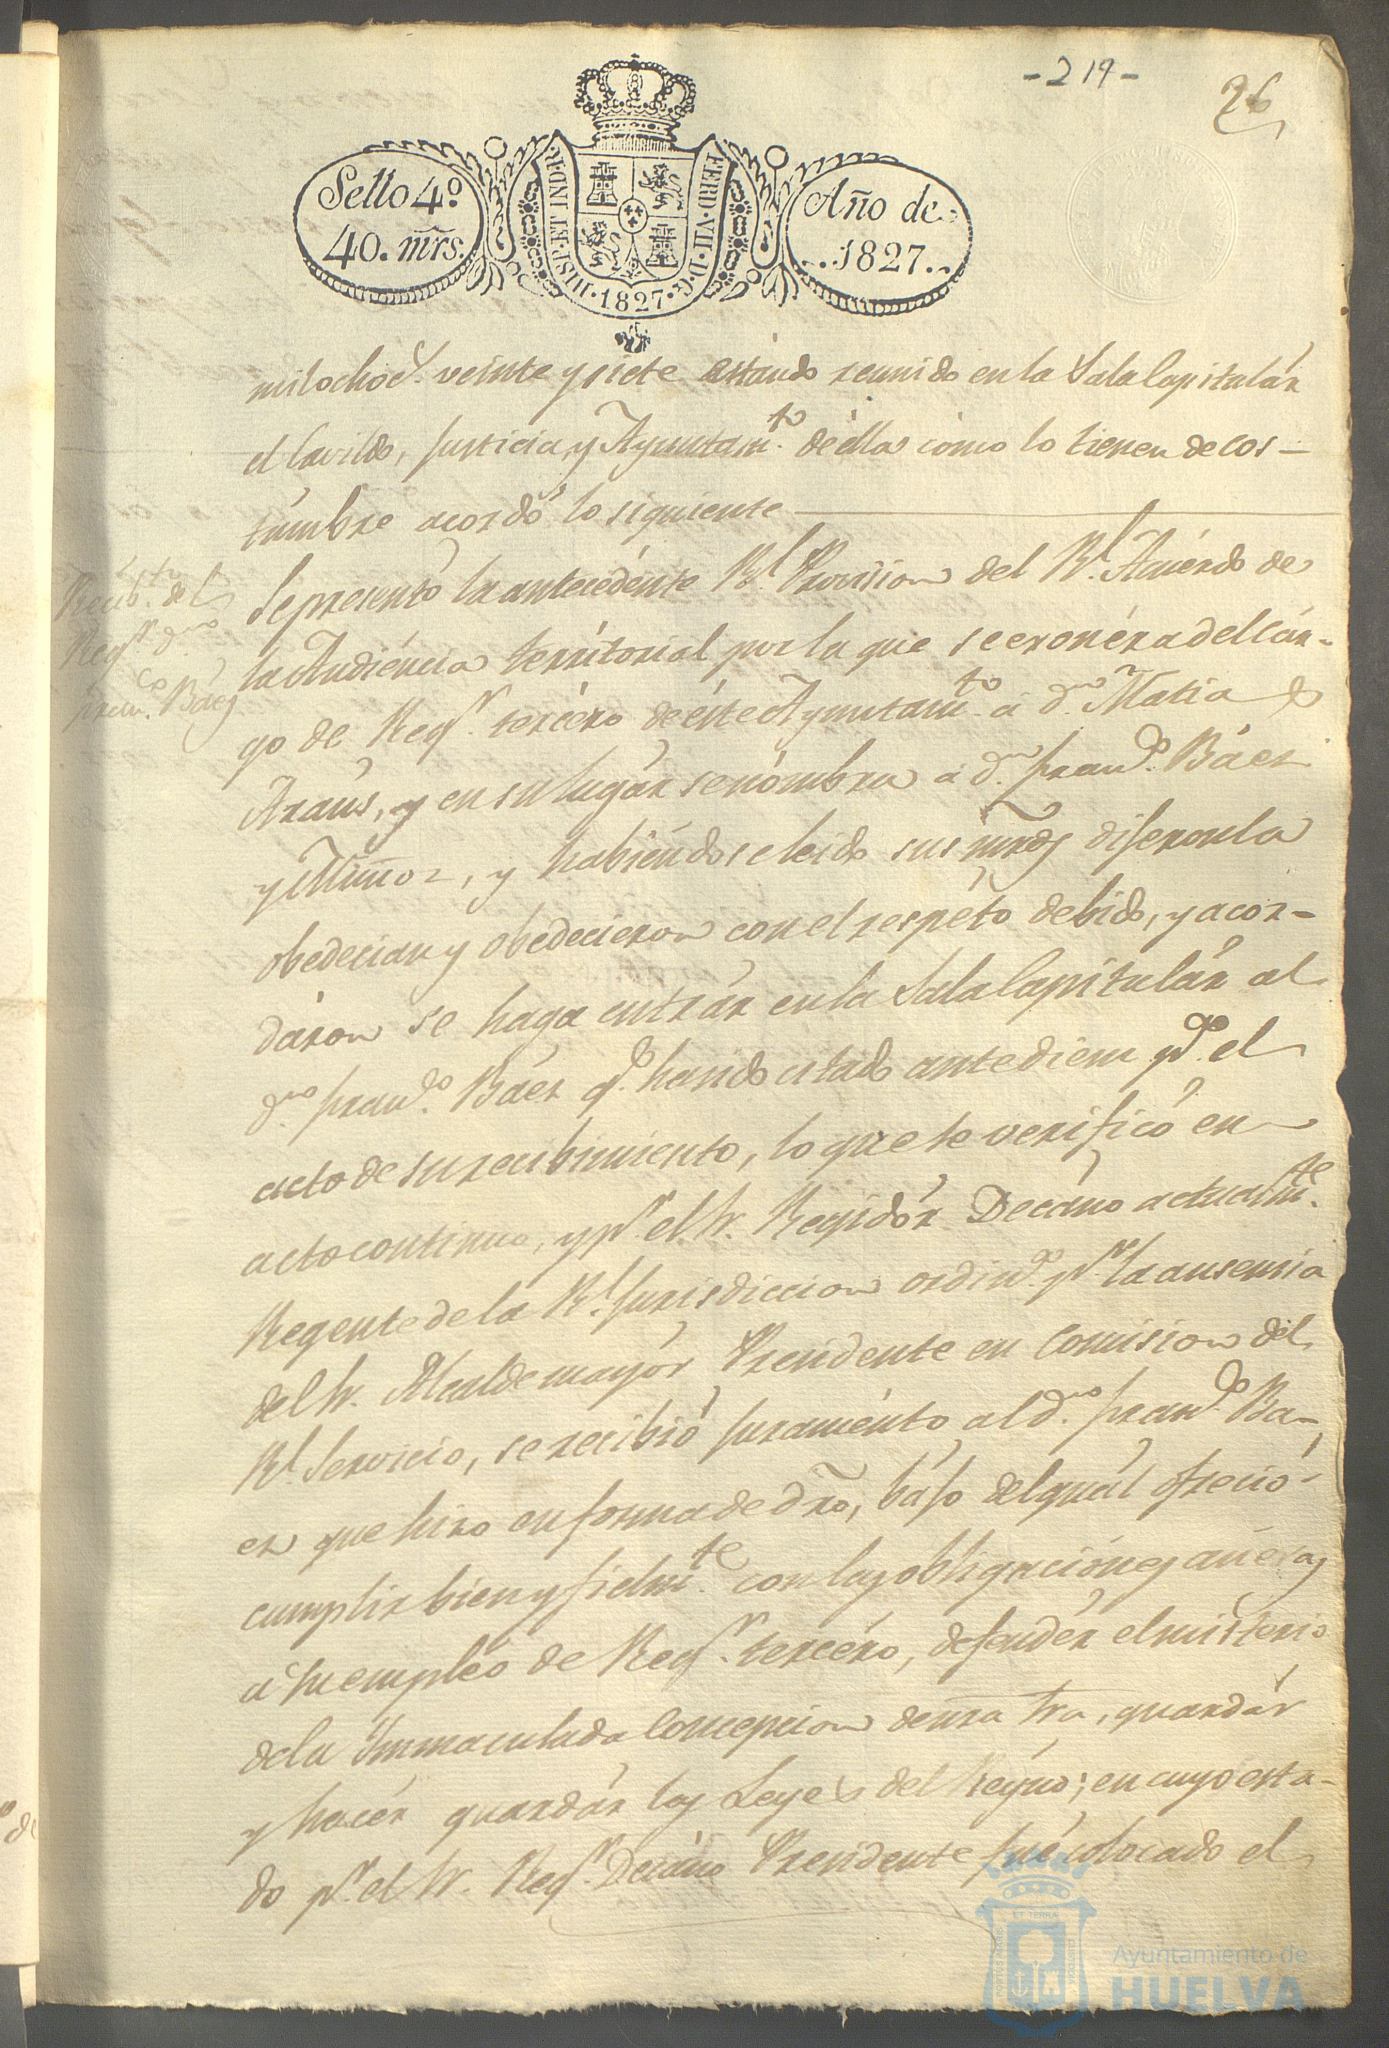 -219-
26
Sello 4º
40. mrs.
HISP. ET. IND. R.
FERD. VII. D. G.
1827
Año de
1827.
mil ochoc.s veinte y siete estando reunido en la Sala Capitulár
el Cavildo, Justicia, y Ayuntam.to de élla cómo lo tienen de cos-
túmbre acordó lo siguiente
Recib.to del
Reg.r D.n
Fran.co Báez
Se presentó la antecédente R.l Provision del R.l Acuérdo de
la Audiéncia territorial por la que se exonéra del Cár-
go de Reg.r tercéro de éste Ayuntam.to á D.n Matia de
Araus, y en su lugár se nómbra á D.n Fran.co Báez
y Muñoz, y habiéndose leido sus mrds dijeron la
obedecian y obedecieron con el respéto debido, y acor-
dáron se haga entrár en la Sala Capitulár al
D.n Fran.co Báez q.e ha sido citado antediem p.a el
acto de su recibimiento, lo que se verificó en
acto continuo, y p.r el Sr. Regidór Decáno actualm.te
Regente de la R.l Jurisdiccion ordin.a p.r la ausencia
del Sr. Alcalde mayór Presidente en Comision del
R.l Servicio, se recibió juraménto al D.n Fran.co Ba-
ez que hizo en forma de dro, bajo del quál ofreció
cumplir bien y fielm.te con las obligaciónes anéxas
á su empléo de Reg.r tercéro, defendér el misterio
de la Immaculada Concepcion de nra Sra, guardár
y hacér guardár las Leyes del Réyno; en cuyo esta-
do p.r el Sr. Reg.r Decáno Presidente fué colocado el
ET TERRA
Ayuntamiento de
HUELVA